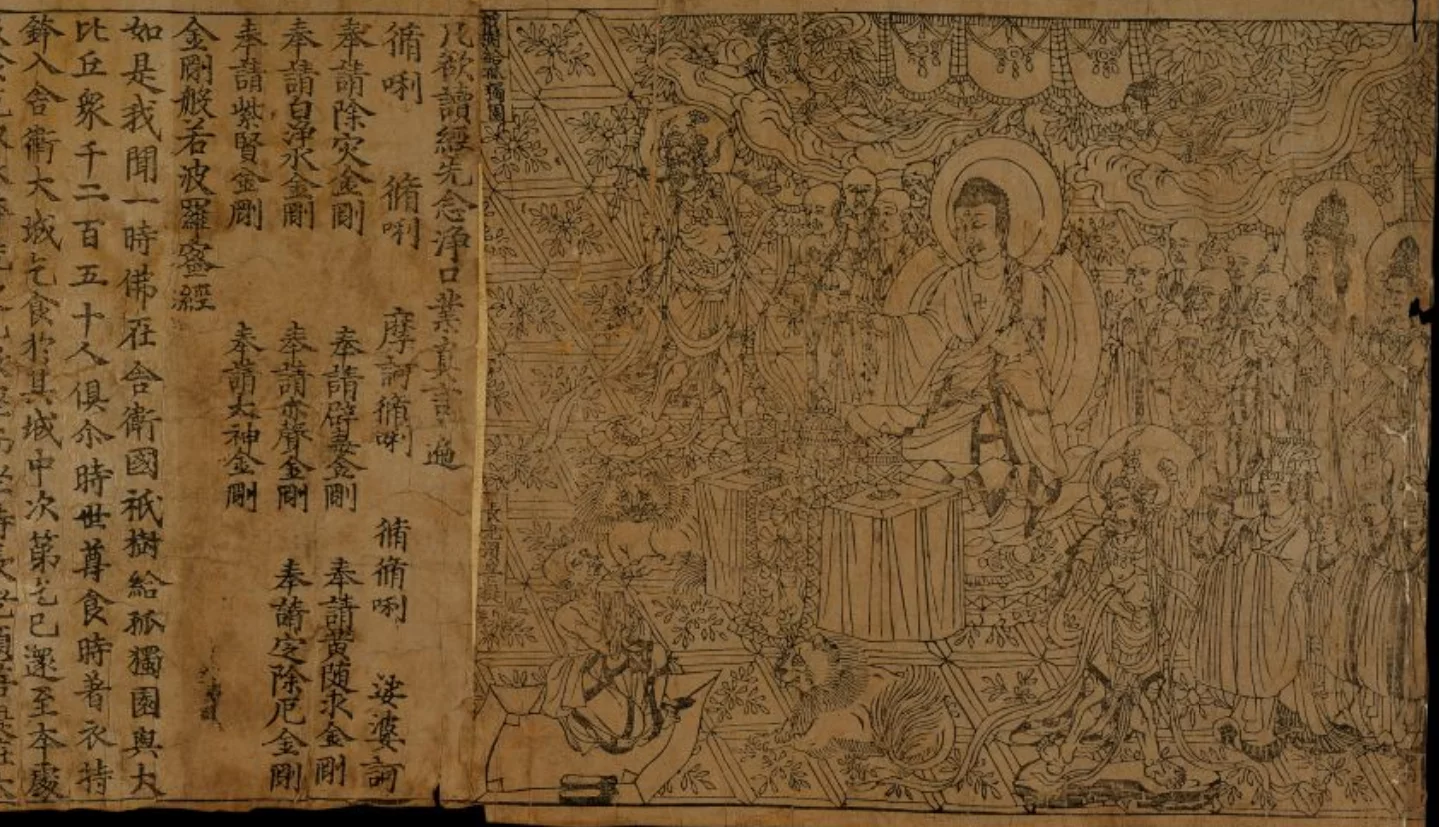 祇樹給孤獨園
凡欲讀經先念淨口業真言遍
脩唎 脩唎 摩訶脩唎 脩脩唎 娑婆訶
奉請除灾金剛 奉請辟毒金剛 奉請黄随求金剛
奉請白淨水金剛 奉請赤聲金剛 奉請定除厄金剛
奉請紫賢金剛 奉請大神金剛
金剛般若波羅蜜經
如是我聞一時佛在舍衛國祇樹給孤獨園與大
比丘衆千二百五十人俱尒時世尊食時著衣持
鉢入舍衛大城乞食於其城中次第乞已還至本處